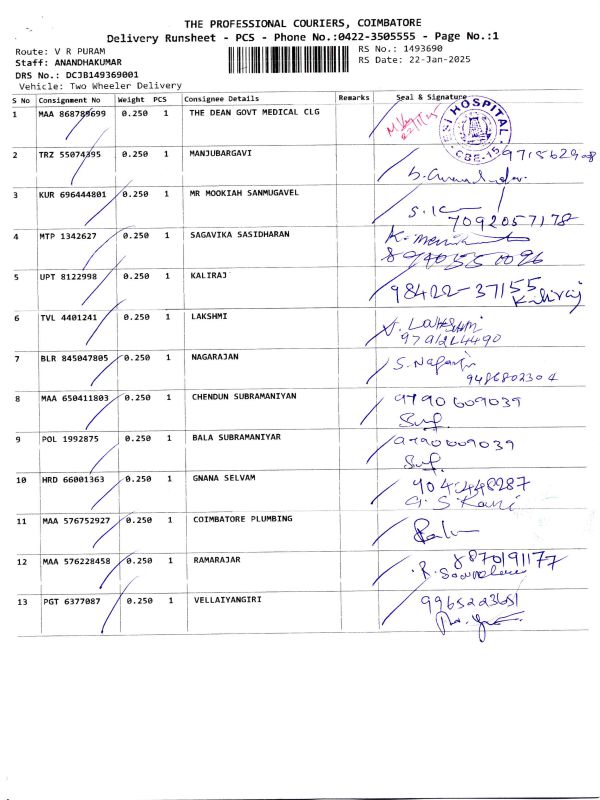 THE PROFESSIONAL COURIERS, COIMBATORE
Delivery Runsheet - PCS - Phone No.:0422-3505555 - Page No.:1
Route: V R PURAM RS No.: 1493690
Staff: ANANDHAKUMAR RS Date: 22-Jan-2025
DRS No.: DCJB149369001
Vehicle: Two Wheeler Delivery
S No Consignment No Weight PCS Consignee Details Remarks Seal & Signature
1 MAA 868789699 0.250 1 THE DEAN GOVT MEDICAL CLG ESI HOSPITAL CBE-15
2 TRZ 55074395 0.250 1 MANJUBARGAVI
3 KUR 696444801 0.250 1 MR MOOKIAH SANMUGAVEL 7092057178
4 MTP 1342627 0.250 1 SAGAVIKA SASIDHARAN
5 UPT 8122998 0.250 1 KALIRAJ 98422-37155
Kaliraj
6 TVL 4401241 0.250 1 LAKSHMI V. LAKSHMI
7 BLR 845047805 0.250 1 NAGARAJAN S. Nagarajan
9486802304
8 MAA 650411803 0.250 1 CHENDUN SUBRAMANIYAN 9790609039
9 POL 1992875 0.250 1 BALA SUBRAMANIYAR 9790609039
10 HRD 66001363 0.250 1 GNANA SELVAM
G. S Kani
11 MAA 576752927 0.250 1 COIMBATORE PLUMBING
12 MAA 576228458 0.250 1 RAMARAJAR 8870191177
13 PGT 6377087 0.250 1 VELLAIYANGIRI 9965223651